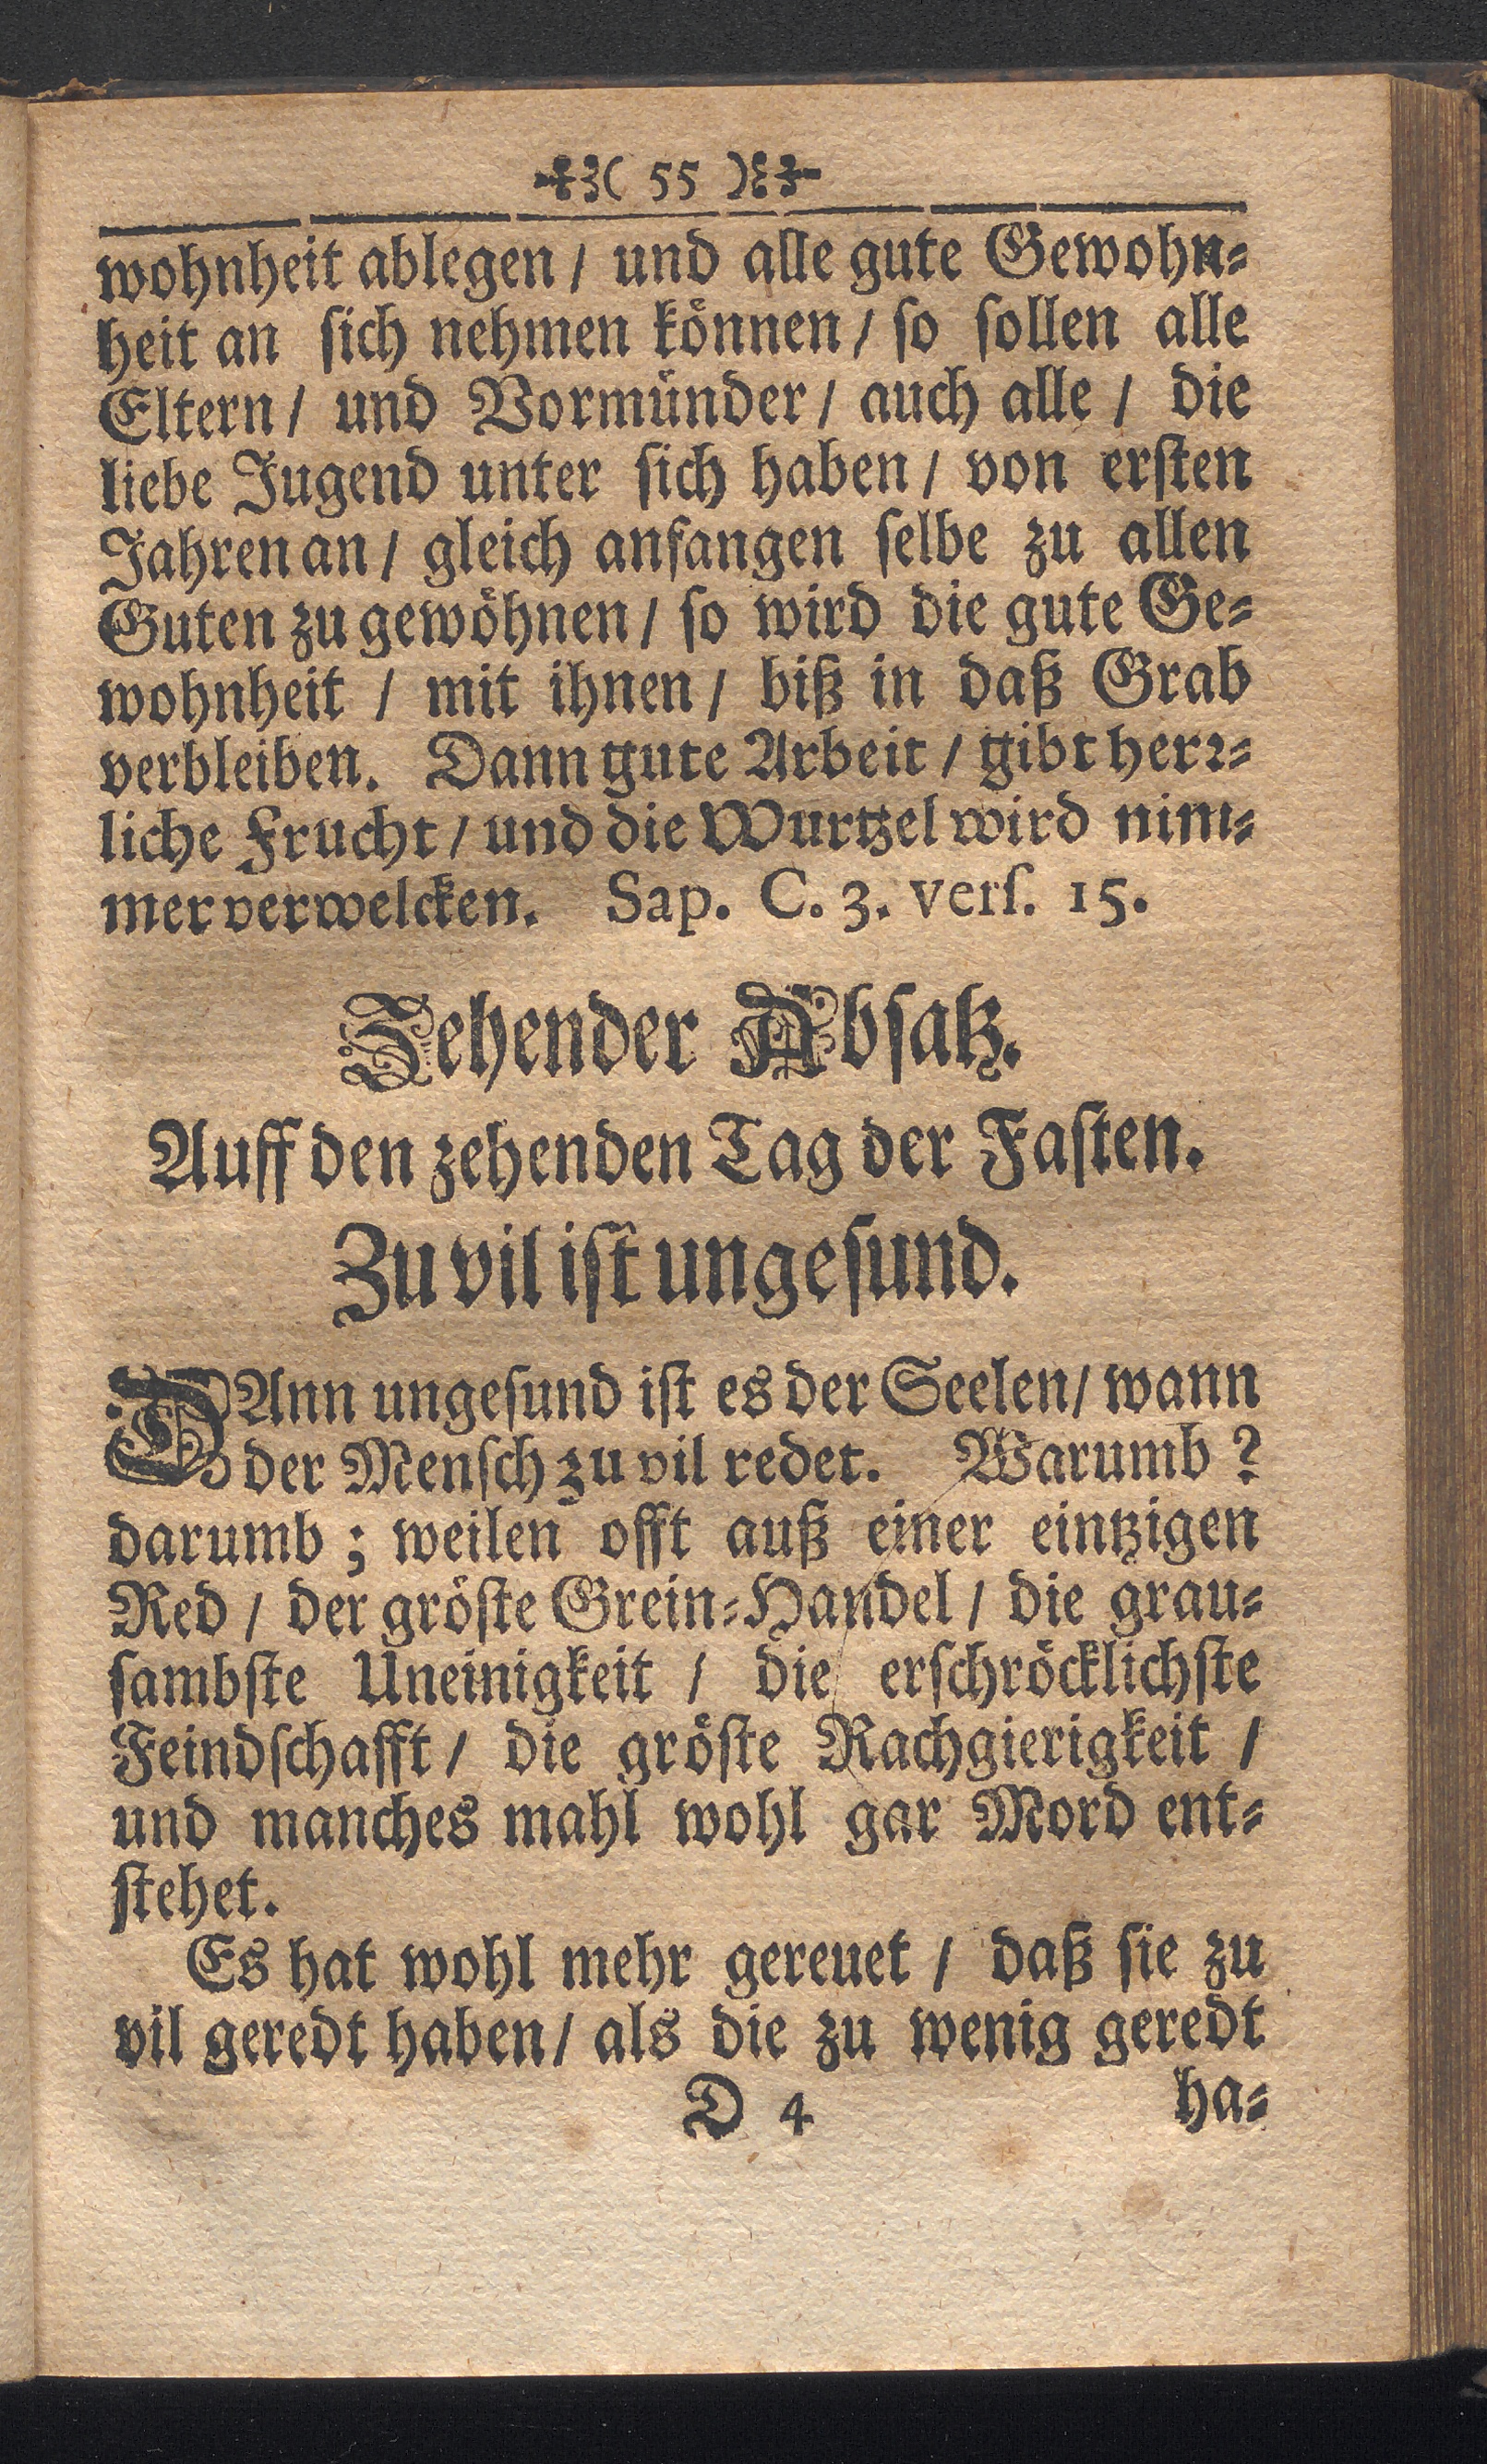 ( 55 )
wohnheit ablegen / und alle gute Gewohn⸗
heit an ſich nehmen koͤnnen / ſo ſollen alle
Eltern / und Vormuͤnder / auch alle / die
liebe Jugend unter ſich haben / von erſten
Jahren an / gleich anfangen ſelbe zu allen
Guten zu gewoͤhnen / ſo wird die gute Ge⸗
wohnheit / mit ihnen / biß in daß Grab
verbleiben. Dann gute Arbeit / gibt herꝛ⸗
liche Frucht / und die Wurtzel wird nim⸗
mer verwelcken. Sap. C. 3. verſ. 15.
Zehender Abſatz.
Auff den zehenden Tag der Faſten.
Zu vil iſt ungeſund.
DAnn ungeſund iſt es der Seelen / wann
der Menſch zu vil redet. Warumb ?
darumb ; weilen offt auß einer eintzigen
Red / der groͤſte Grein⸗Handel / die grau⸗
ſambſte Uneinigkeit / die erſchroͤcklichſte
Feindſchafft / die groͤſte Rachgierigkeit /
und manches mahl wohl gar Mord ent⸗
ſtehet.
Es hat wohl mehr gereuet / daß ſie zu
vil geredt haben / als die zu wenig geredt
D 4 ha⸗